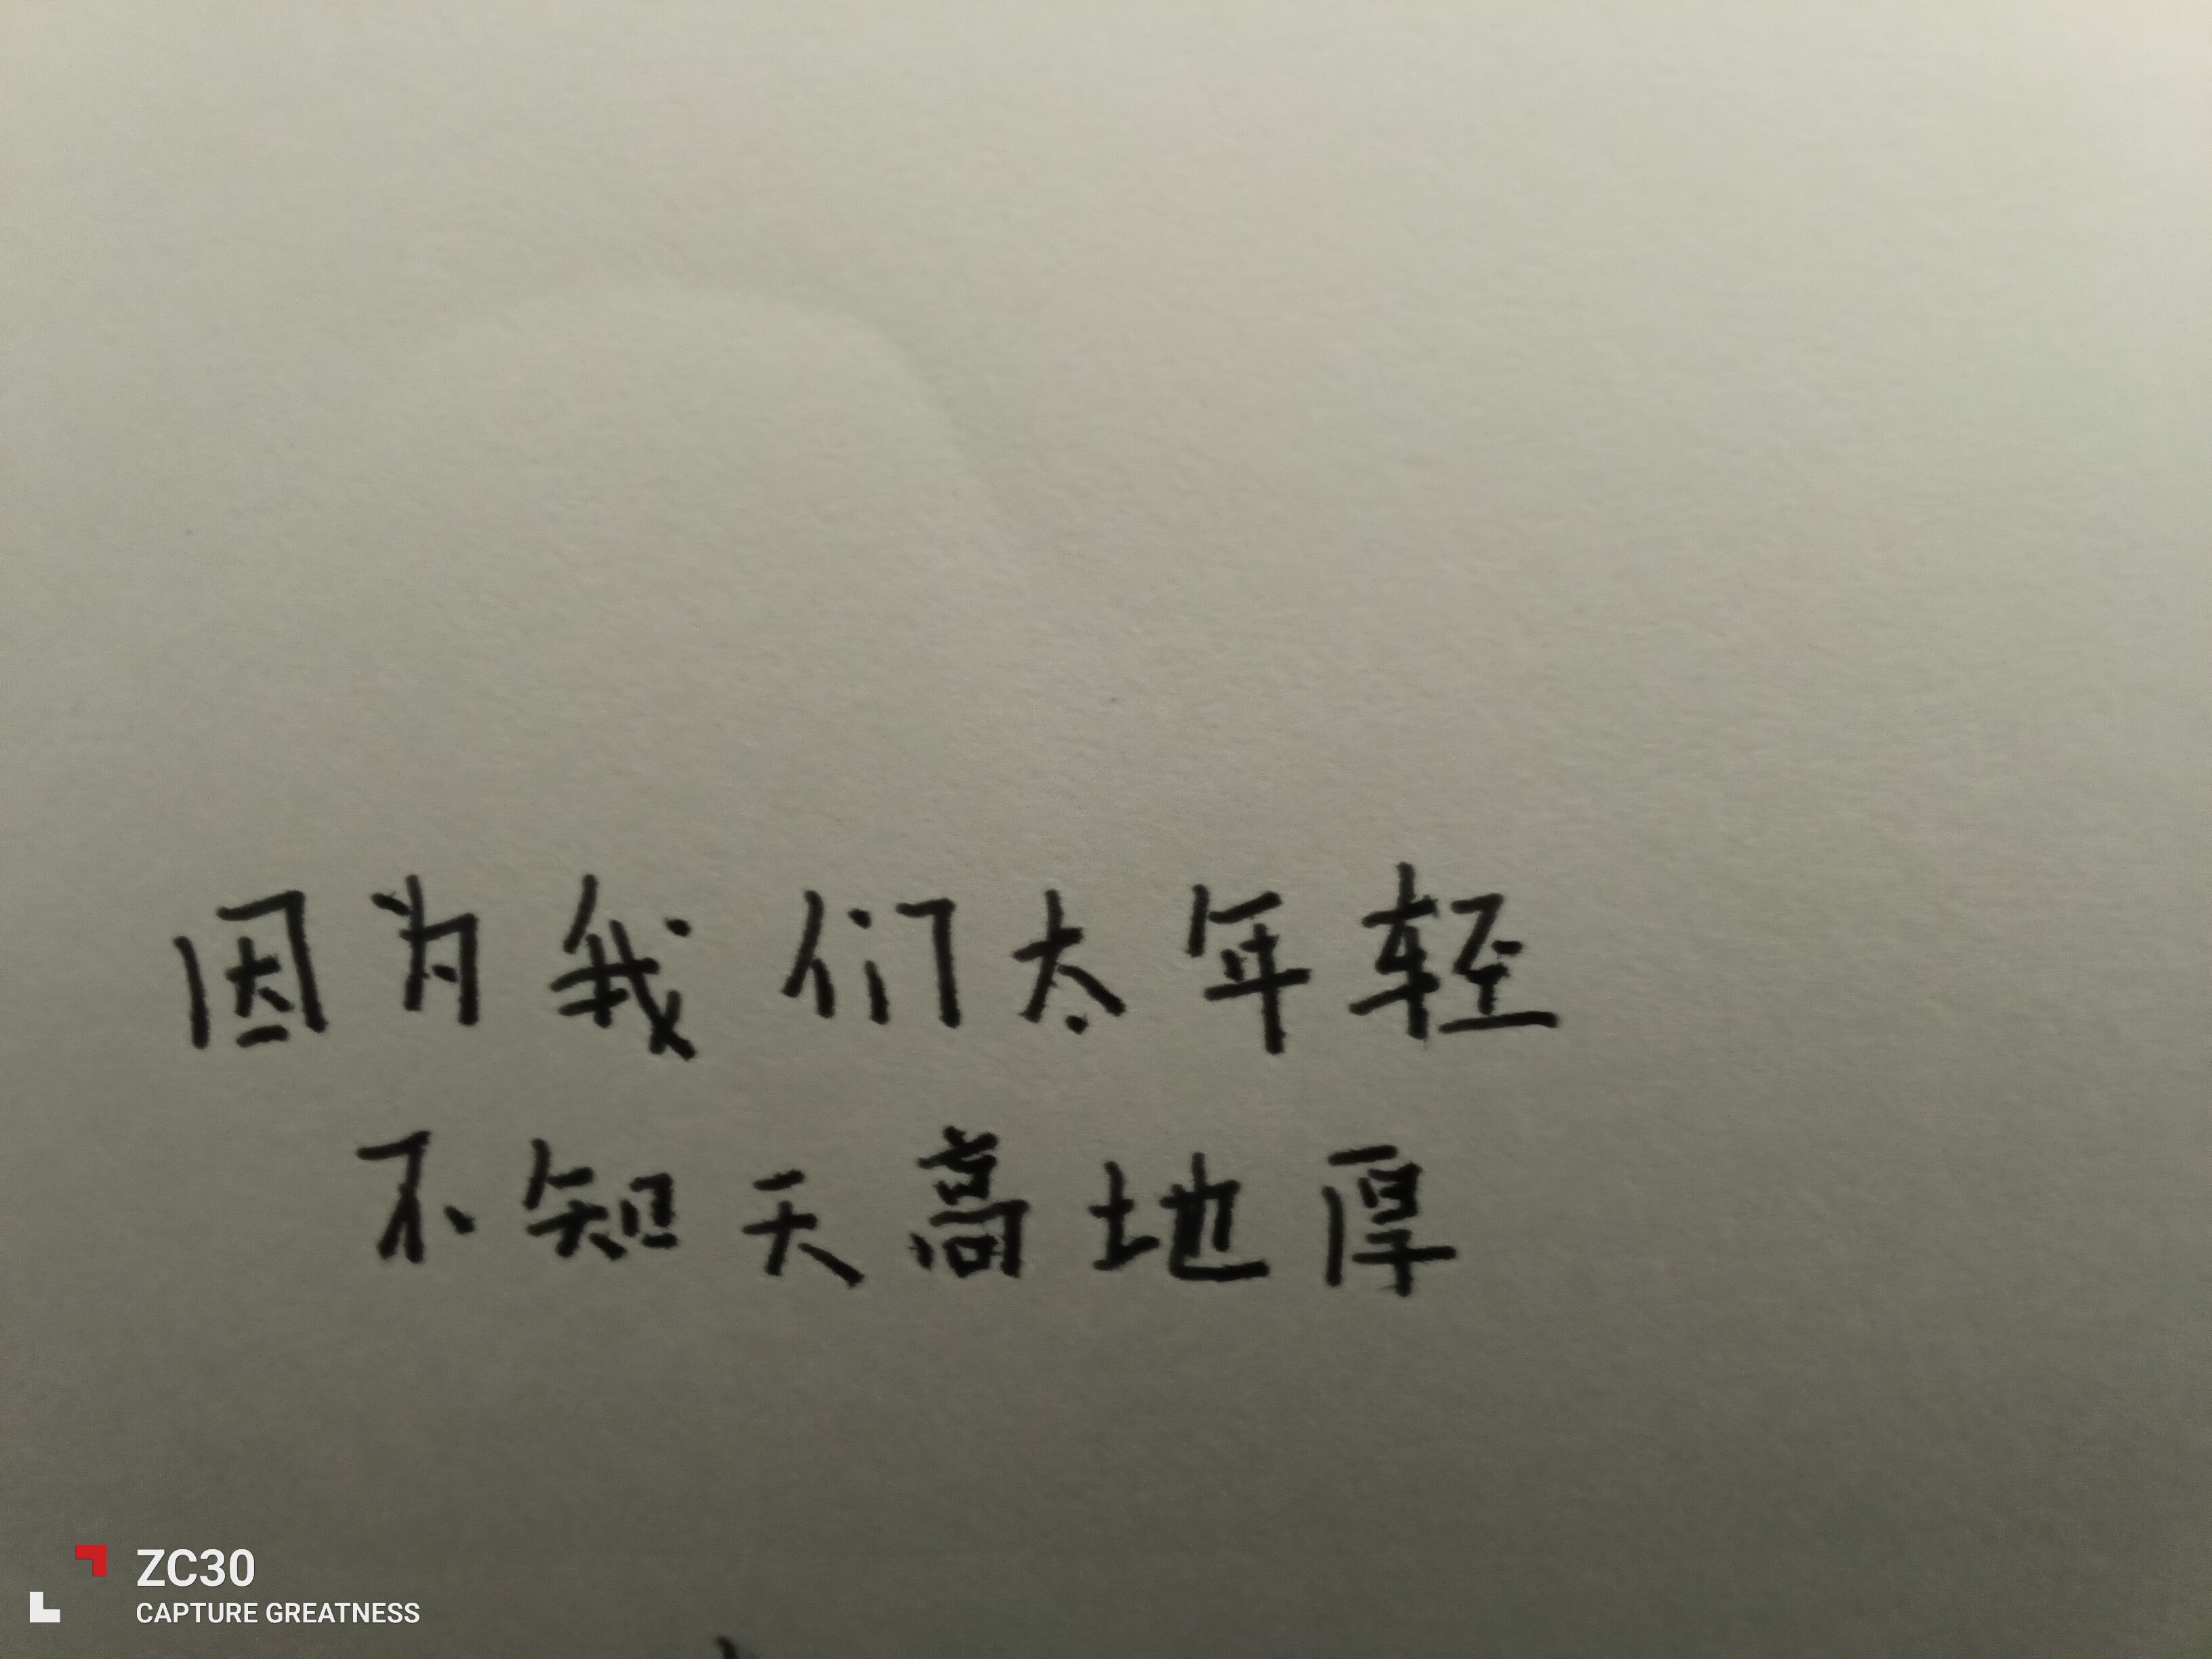 因为我们太年轻
不知天高地厚
ZC30
CAPTURE GREATNESS